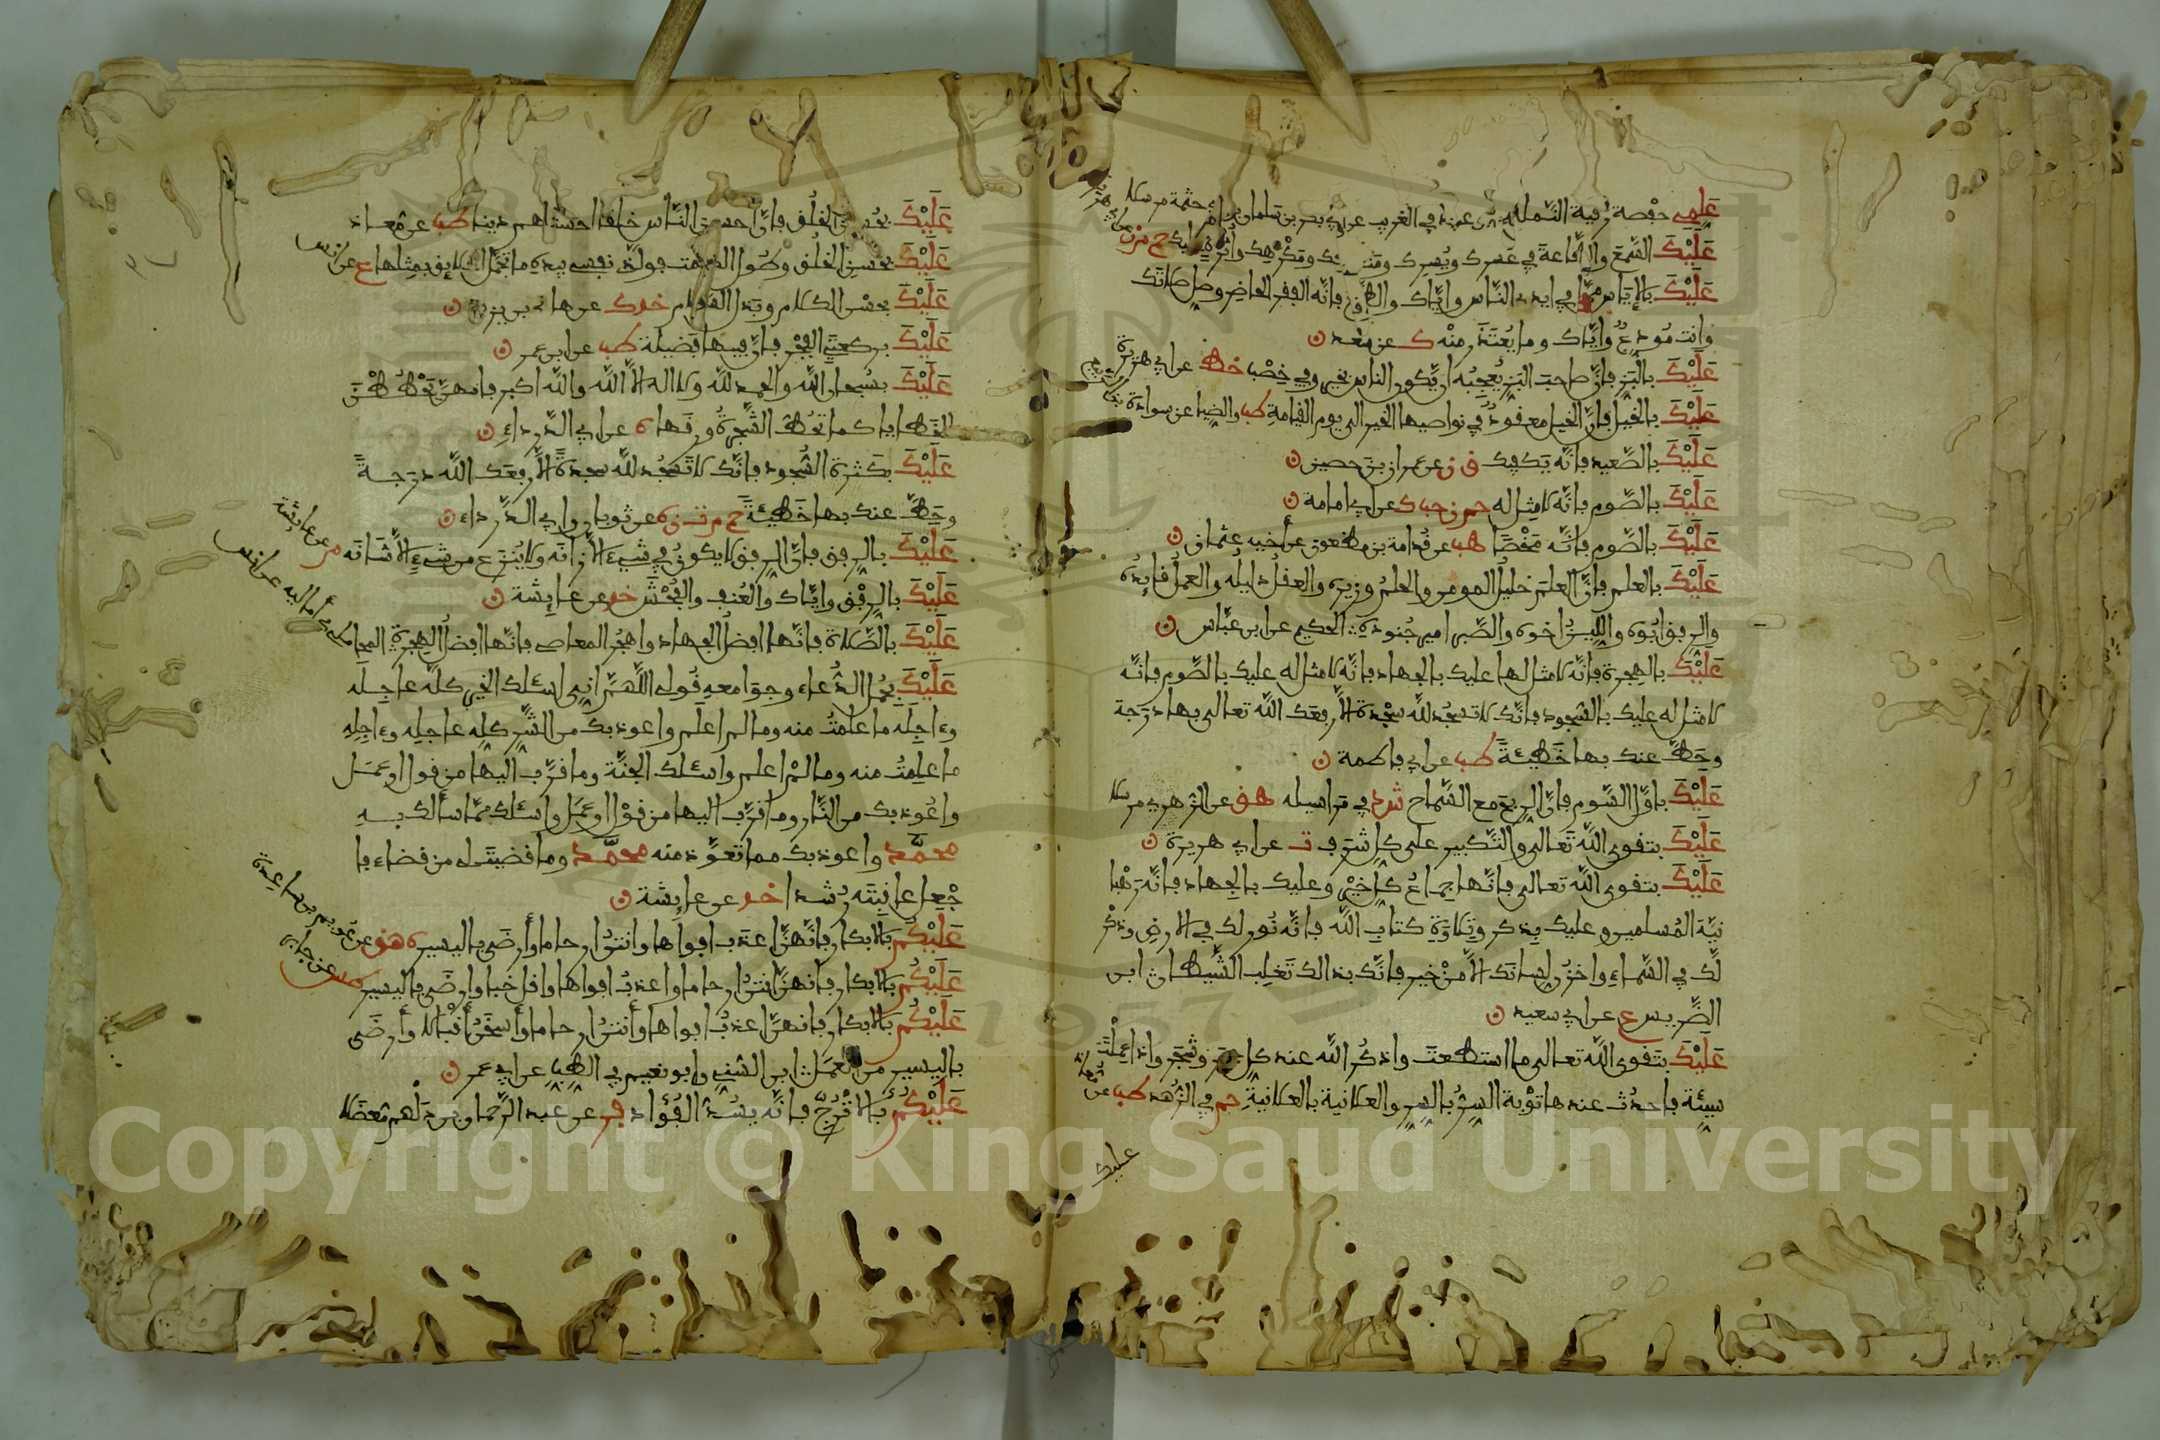 علمي حفصة رقية النملة أبو عبيد في الغريب عن أبي بكر بن سليمان بن أبي حثمة مرسلا
عليك السمع والطاعة في عسرك ويسرك ومنشطك ومكرهك وأثرة عليك حم م ن عن أبي هريرة
عليك بالإياس مما في ايدي الناس وإياك والطمع فإنه الفقر الحاضر وصل صلاتك
وانت مودع وإياك وما يعتذر منه ك عن سعد
عليك بالبز فإن صاحب البز يعجبه ان يكون الناس بخير وفي خصب خط عن ابي هريرة
عليك بالخيل فإن الخيل معقود في نواصيها الخير الى يوم القيامة طب والضيا عن سوادة بن الربيع
عليك بالصعيد فإنه يكفيك ق ن عن عمران بن حصين
عليك بالصوم فإنه لا مثل له حم ن حب ك عن ابي امامة
عليك بالصوم فإنه مخصا هب عن قدامة بن مظعون عن أخيه عثمان
عليك بالعلم فإن العلم خليل المومن والحلم وزيره والعقل دليله والعمل قايده
والرفق ابوه واللين اخوه والصبر امير جنوده الحكيم عن ابن عباس
عليك بالهجرة فإنه لا مثل لها عليك بالجهاد فإنه لا مثل له عليك بالصوم فإنه
لا مثل له عليك بالسجود فإنك لا تسجد لله سجدة الا رفعك الله تعالى بها درجة
وحط عنك بها خطيئة طب عن ابي فاطمة
عليك باول السوم فإن الربح مع السماح ش د في مراسيله هق عن الزهري مرسلا
عليك بتقوى الله تعالى والتكبير على كل شرف ت عن ابي هريرة
عليك بتقوى الله تعالى فإنها جماع كل خير وعليك بالجهاد فإنه رهبا
نية المسلمين وعليك بذكر وتلاوة كتاب الله فإنه نور لك في الارض وذكر
لك في السماء واخزن لسانك الا من خير فإنك بذالك تغلب الشيطان ابن
الضريس ع عن ابي سعيد
عليك بتقوى الله تعالى ما استطعت واذكر الله عند كل حجر وشجر واذا عملت
سيئة فاحدث عندها توبة السر بالسر والعلانية بالعلانية حم في الزهد طب عن معاذ
عليك
عليك بحسن الخلق فإن أحسن الناس خلقا احسنهم دينا طب عن معاذ
عليك بحسن الخلق وطول الصمت فوالذي نفسي بيده ما تجمل الخلايق بمثلها ع عن انس
عليك بحسن الكلام وبذل الطعام خد ك عن هانئ بن يزيد
عليك بركعتي الفجر فإن فيهما فضيلة طب عن ابن عمر
عليك بسبحان الله والحمد لله ولا اله الا الله والله اكبر فإنهن يحططن
الخطايا كما تحط الشجرة ورقها ه عن ابي الدرداء
عليك بكثرة السجود فإنك لا تسجد لله سجدة الا رفعك الله درجة
وحط عنك بها خطيئة حم م ت ن ه عن ثوبان وابي الدرداء
عليك بالرفق فإن الرفق لا يكون في شيء الا زانه ولا ينزع من شيء الا شانه م عن عايشة
عليك بالرفق وإياك والعنف والفحش خد عن عايشة
عليك بالصلاة فإنها افضل الجهاد واهجر المعاصي فإنها افضل الهجرة المحاملي في أماليه عن انس
عليك بجمل الدعاء وجوامعه قولي اللهم اني اسئلك الخير كله عاجله
وءاجله ما علمت منه وما لم اعلم واعوذ بك من الشر كله عاجله وءاجله
ما علمت منه وما لم اعلم واسئلك الجنة وما قرب اليها من قول او عمل
واعوذ بك من النار وما قرب اليها من قول او عمل واسئلك مما سألك به
محمد واعوذ بك مما تعوذ منه محمد وما قضيت لي من قضاء فا
جعل عاقبته رشدا خد عن عايشة
عليكم بالابكار فإنهن اعذب افواها وانتق ارحاما وأرضى باليسير ه هق عن عويم بن ساعدة
عليكم بالابكار فإنهن انتق ارحاما واعذب افواها واقل خبا وارضى باليسير طس عن جابر
عليكم بالابكار فإنهن اعذب افواها وأنتق ارحاما وأسخن أقبالا وأرضى
باليسير من العمل ابن السني وابو نعيم في الطب عن ابن عمر
عليكم بالاترج فإنه يشد الفؤاد فر عن عبد الرحمان بن دلهم معضلا
Copyright © King Saud University
1957